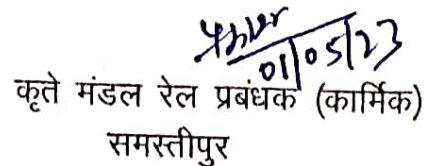 01/05/23
कृते मंडल रेल प्रबंधक (कार्मिक)
समस्तीपुर